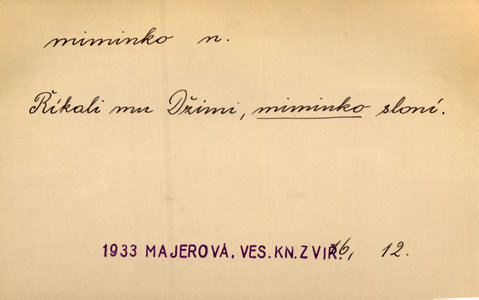 miminko n.
Říkali mu Džimi, miminko sloní.
1933 MAJEROVÁ. VES. KN. ZVÍŘ. 12.